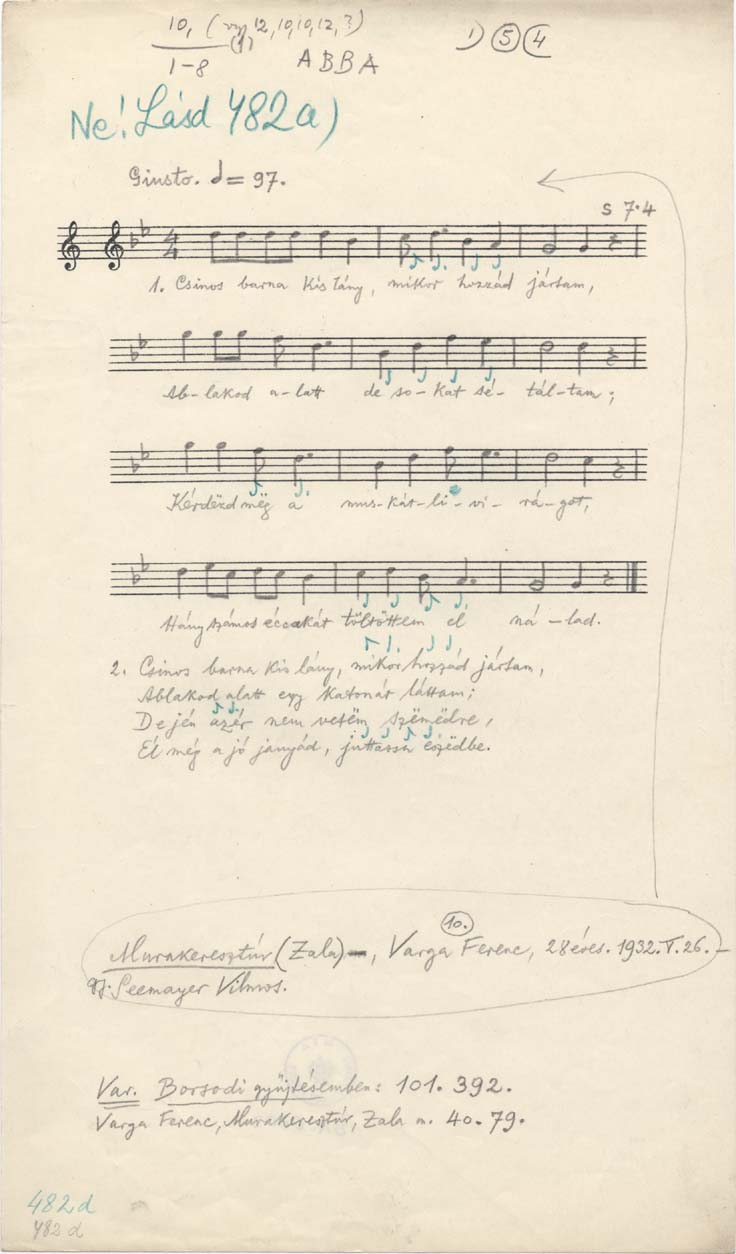 10, (vagy 12, 10, 10, 12, ?)
1-8 (1) ABBA
1) 5 4
Ne! Lásd 482a)
Giusto. = 97.
s 7.4
1. Csinos barna kis lány, mikor hozzád jártam,
Ab-lakod a-latt de so-kat sé-tál-tam;
Kérdëzd mëg a mus-kát-li-vi-rá-got,
Hány számos éccakát töltöttem el ná-lad.
2. Csinos barna kis lány, mikor hozzád jártam,
Ablakod alatt egy katonát láttam;
De jén azér nem vetëm szëmëdre,
Él még a jó jányád, juttassa eszëdbe.
10.
Murakeresztúr (Zala)-, Varga Ferenc, 28 éves. 1932.V.26. -
gy. Seemayer Vilmos.
Var. Borsodi gyűjtésemben: 101. 392.
Varga Ferenc, Murakeresztúr, Zala m. 40. 79.
482 d
482 d